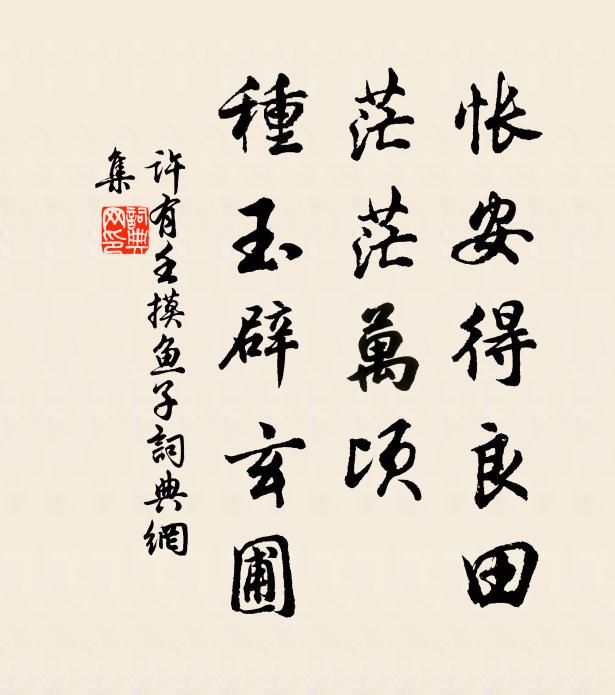 悵安得良田
茫茫萬頃
種玉辟玄圃
許有壬摸魚子詞典網
集
詞典
网印